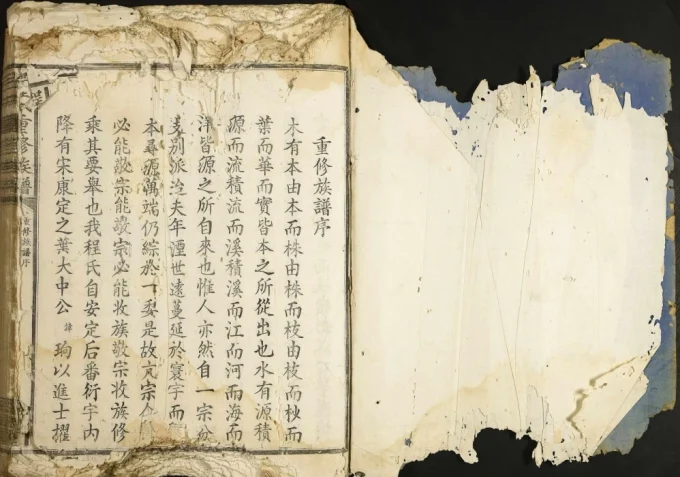 重修族譜序
木有本由本而株由株而枝由枝而杪而
葉而華而實皆本之所從出也水有源積
源而流積流而溪積溪而江而河而海而
洋皆源之所自來也惟人亦然自一宗分
支別派洎夫年湮世遠蔓延於寰宇而
本尋源萬端仍綜於一要是故亢宗
必能敬宗能敬宗必能收族敬宗收族修
乘其要舉也我程氏自安定后番衍宇內
降有宋康定之葉大中公諱珦以進士擢
重修族譜
重修族譜序